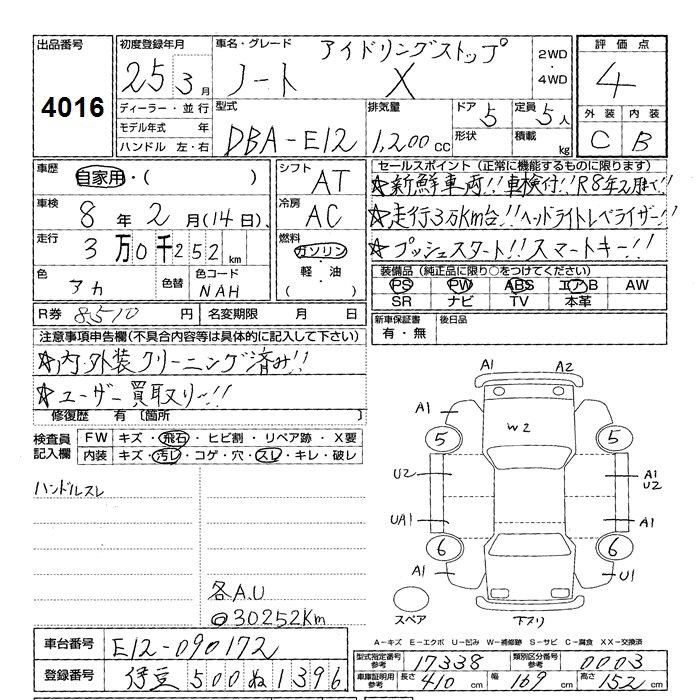 出品番号
4016
初度登録年月
25 3月
ディーラー・並行
モデル年式 年
ハンドル 左・右
車名・グレード アイドリングストップ
ノート X
2WD
・
4WD
型式
DBA-E12
排気量
1,200cc
ドア 5
形状
定員 5人
積載 kg
評価点
4
外装 内装
C B
車歴
自家用・( )
車検
8年2月(14日)
走行
3万0千252km
色
アカ
色替
色コード
NAH
シフト
AT
冷房
AC
燃料
ガソリン
軽・油
( )
セールスポイント(正常に機能するものに限ります)
☆新鮮車両!!車検付!!R8年2月まで!!
☆走行3万km台!!ヘッドライトレベライザー!!
☆プッシュスタート!!スマートキー!!
装備品(純正品に限り○をつけてください)
PS PW ABS エアB AW
SR ナビ TV 本革
R券 8510円 名変期限 月 日
新車保証書
有・無
後日品
注意事項申告欄(不具合内容等は具体的に記入して下さい)
☆内・外装クリーニング済み!!
☆ユーザー買取り!!
修復歴 有〔箇所 〕
検査員
記入欄
FW キズ・飛石・ヒビ割・リペア跡・X要
内装 キズ・汚レ・コゲ・穴・スレ・キレ・破レ
ハンドルスレ
各A.U
◎30252Km
A1 A2
A1
W2
5 5
U2
A1
U2
UA1
A1
6 6
A1
U1
スペア
下サリ
A-キズ E-エクボ U-凹み W-補修跡 S-サビ C-腐食 XX-交換済
車台番号 E12-090172
登録番号 伊豆 500 ぬ 1396
型式指定番号
参考
17338
類別区分番号
参考
0003
車庫証明用
参考
長さ 410cm 幅 169cm 高さ 152cm